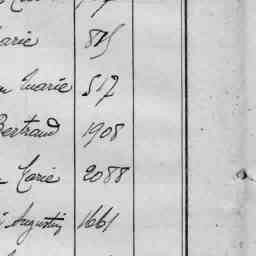 arie 815
Marie 517
Bertrand 1908
Marie 2088
Augustin 1661